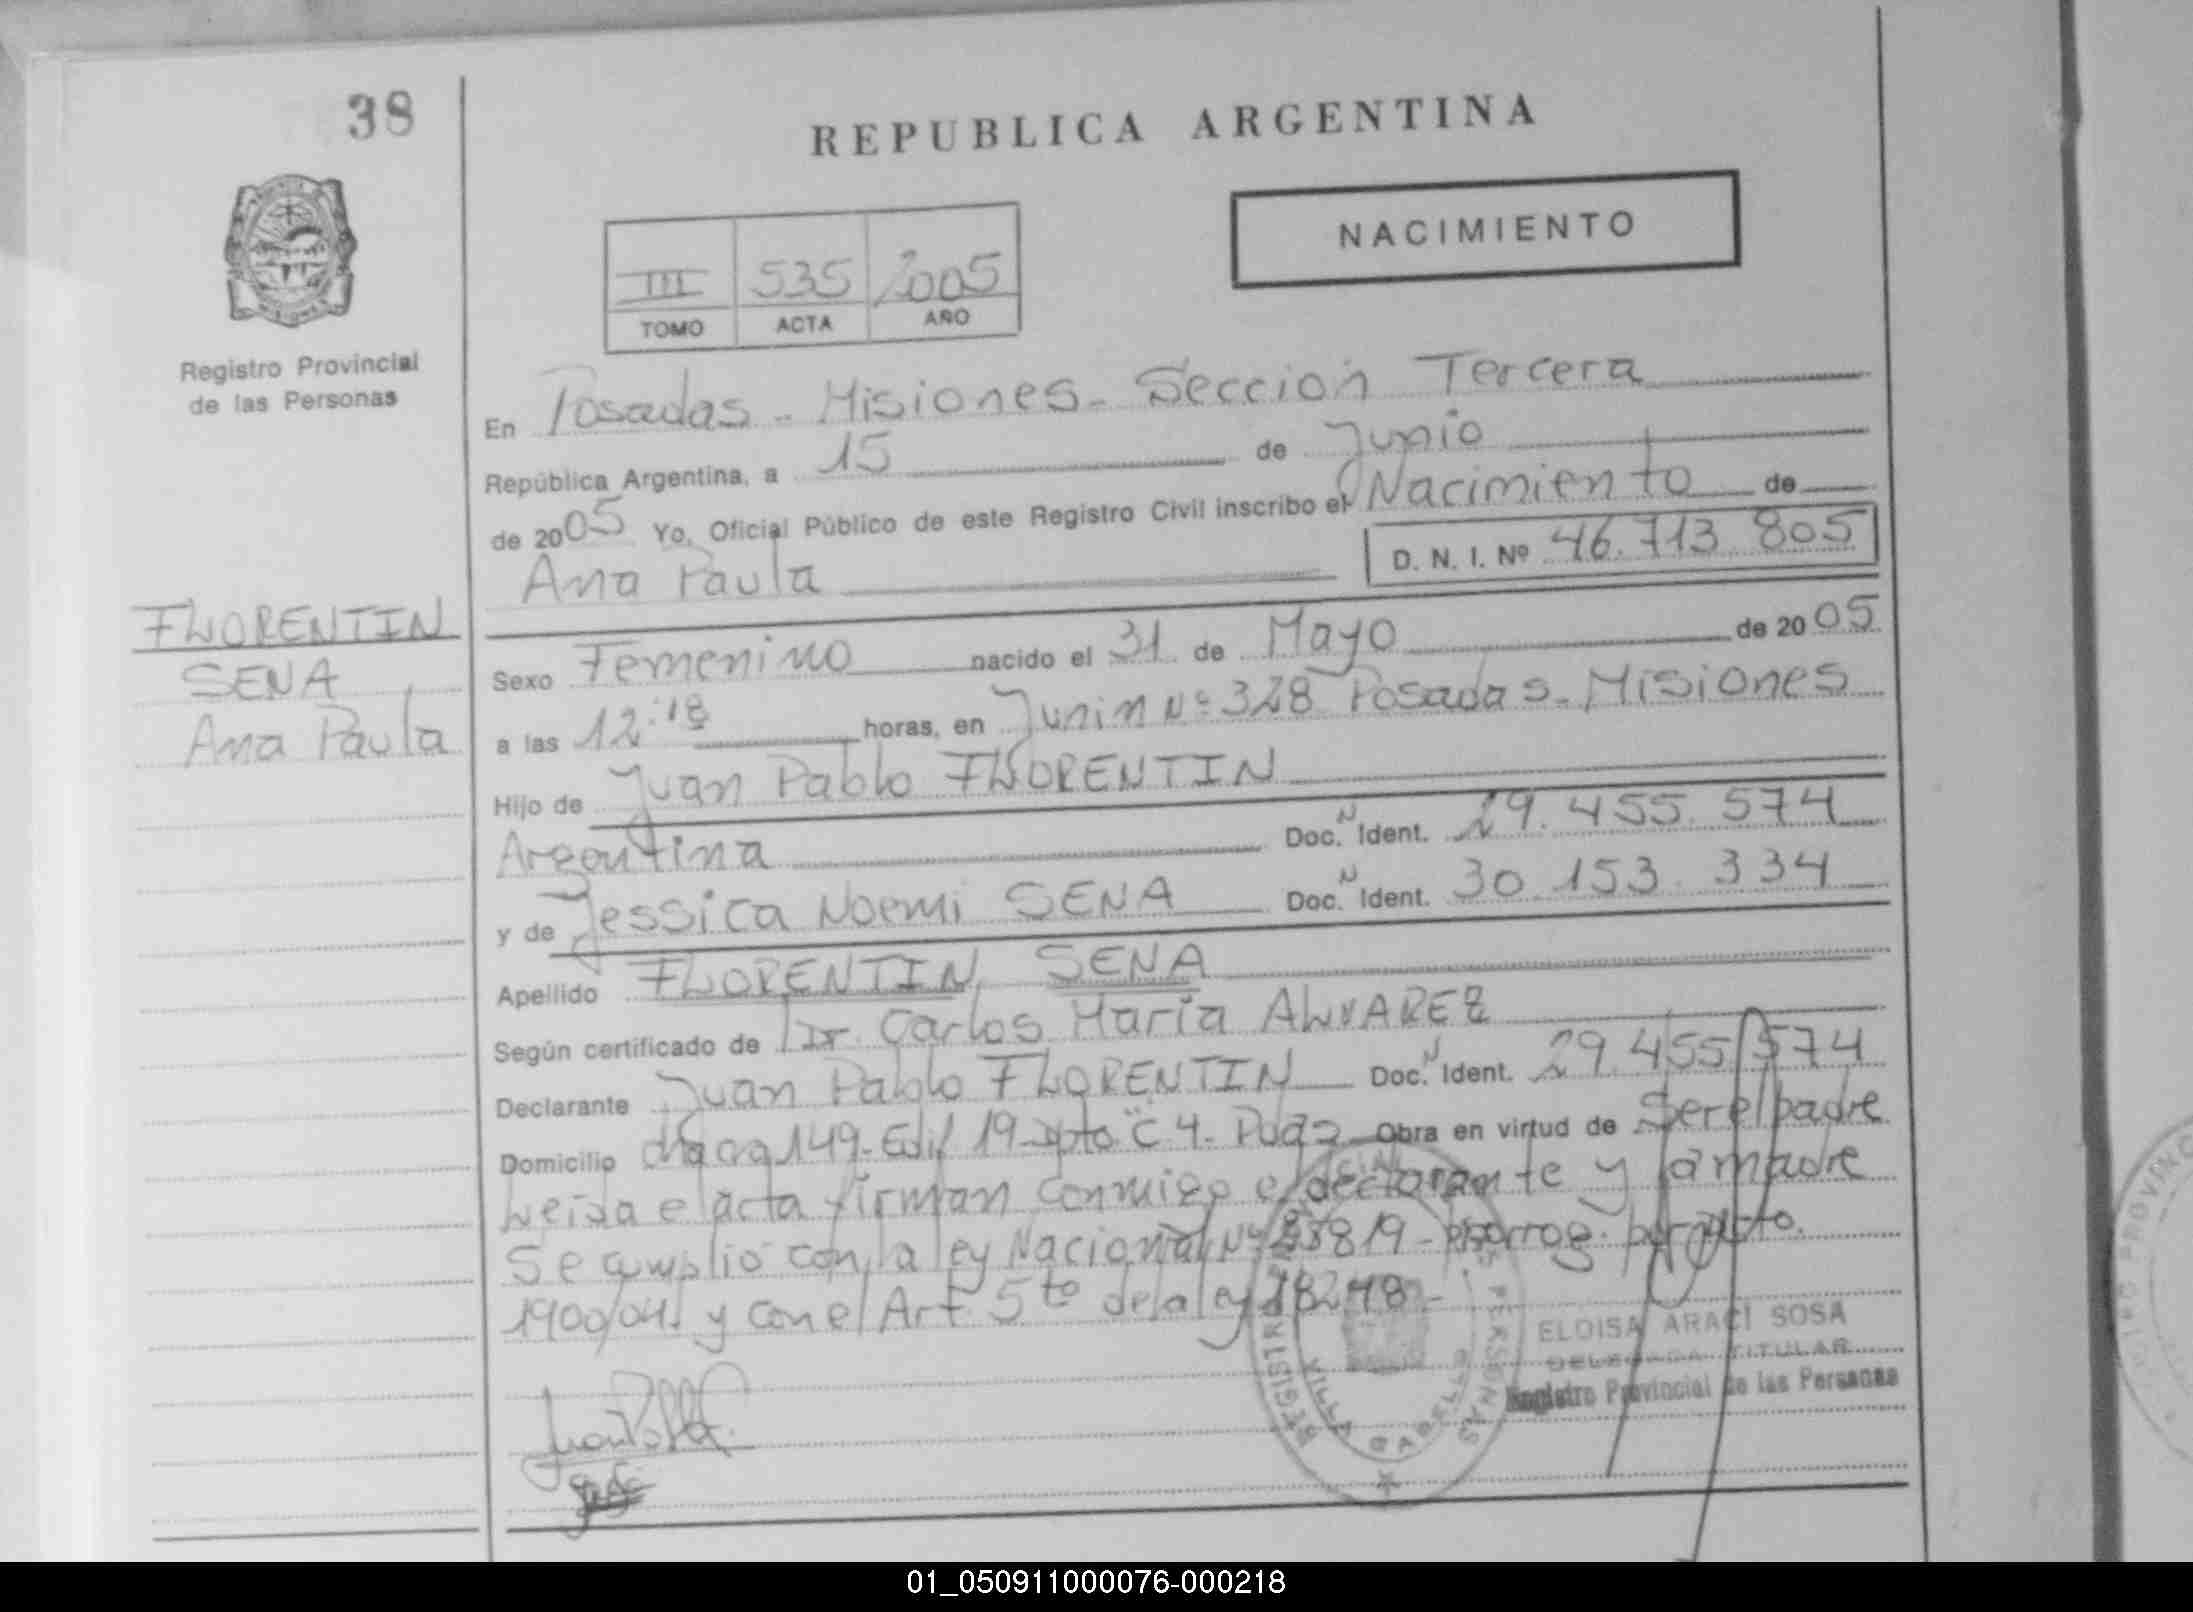 38
REPUBLICA ARGENTINA
NACIMIENTO
III 535 2005
TOMO ACTA AÑO
Registro Provincial
de las Personas
En Posadas - Misiones - Sección Tercera
República Argentina, a 15 de Junio
de 2005 Yo, Oficial Público de este Registro Civil inscribo el Nacimiento de
Ana Paula D. N. I. Nº 46.713.805
FLORENTIN
SENA
Ana Paula
Sexo Femenino nacido el 31 de Mayo de 2005
a las 12:18 horas, en Junin Nº 328 Posadas - Misiones
Hijo de Juan Pablo FLORENTIN
Argentina Doc. N Ident. 29.455.574
y de Jessica Noemi SENA Doc. N Ident. 30.153.334
Apellido FLORENTIN SENA
Según certificado de Dr. Carlos María ALVAREZ
Declarante Juan Pablo FLORENTIN Doc. N Ident. 29.455.574
Domicilio chacra 149- Edif 19- dpto "C 4- Obra en virtud de Ser el padre
Leida el acta firman conmigo el declarante y la madre
Se cumplió con la ley Nacional Nº
1900/04. y con el Art 5to de la ley 18248-
ELOISA ARACI SOSA
DELEGADA TITULAR
Registro Provincial de las Personas
REGISTRO PERSONAS
VILLA CABELLO
REGISTRO PROVINC
01_050911000076-000218